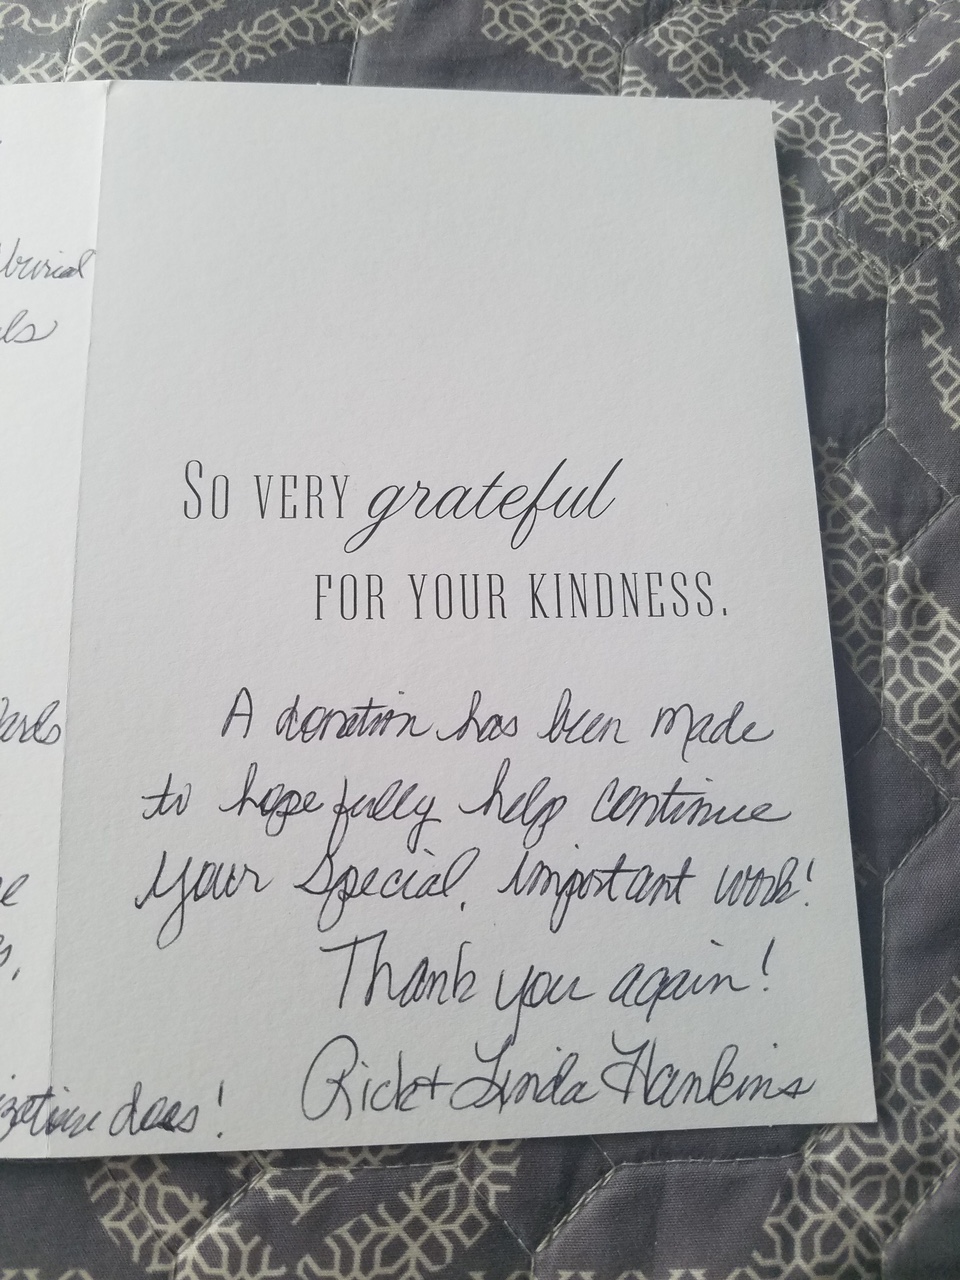 So very grateful
for your kindness.
A donation has been made
to hopefully help continue
your special, important work!
Thank you again!
Rick + Linda Hankins
does!